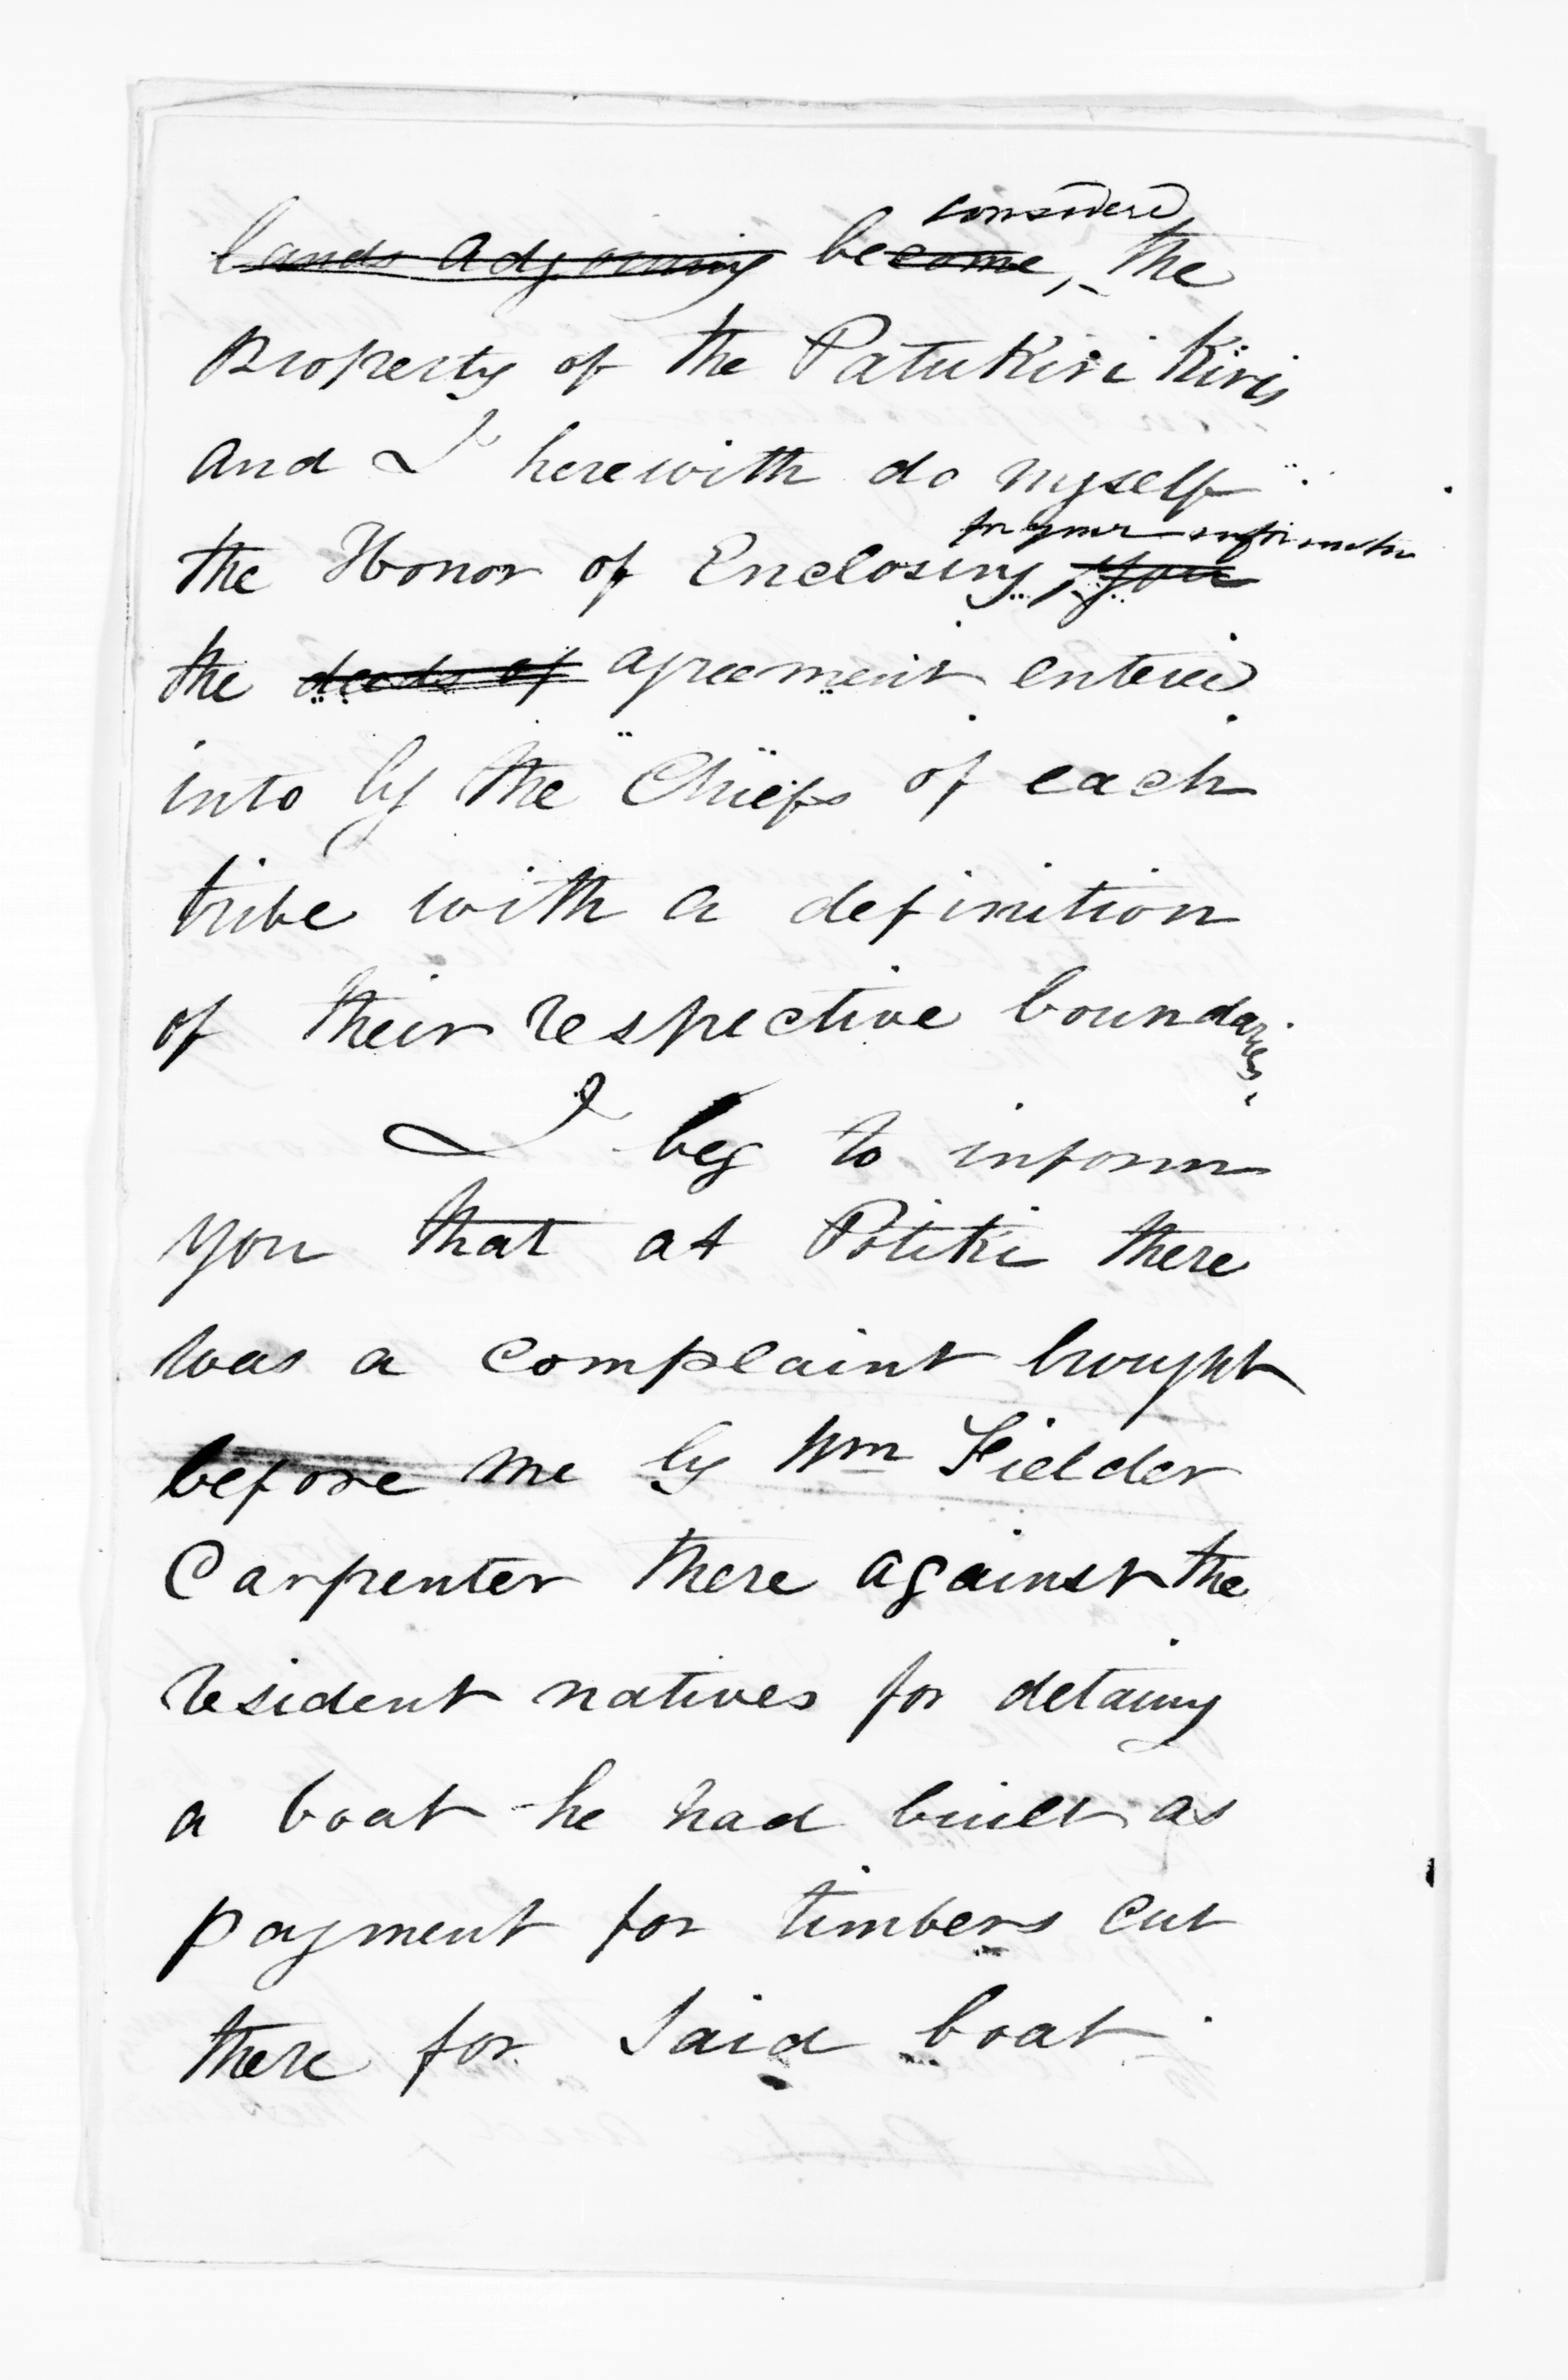 considered
lands adjoining become, the
property of the Patukiri Kiris
and I herewith do myself
for your information
the Honor of Enclosing, you
the deeds of agreement entered
into by the Chiefs of each
tribe with a definition
of their respective boundaries.
I beg to inform
you that at Potiki there
was a complaint brought
before me by Wm Fielder
Carpenter there against the
resident natives for detaing
a boat he had built as
payment for timbers cut
there for said boat.